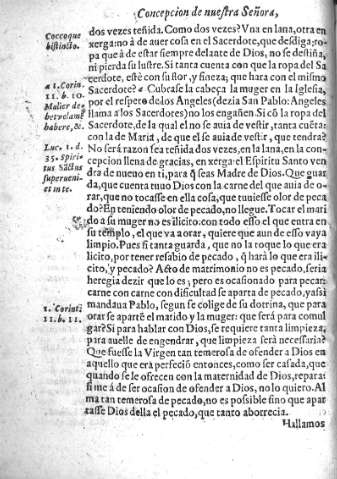 Concepcion de nuestra Señora,
Coccoque
bistincto.
a 1. Corin.
11. b. 10.
Mulier de-
bet velamẽ
habere, &c.
Luc. 1. d.
35. Spiri-
tus Sãctus
superueni-
et in te.
1. Corinti
11. b. 11.
dos vezes teñida. Como dos vezes? Vna en lana, otra en
xerga: no à de auer cosa en el Sacerdote, que desdiga; ro-
pa que à de estar siempre delante de Dios, no se destiña,
ni pierda su lustre. Si tanta cuenta con que la ropa del Sa
cerdote, estè con su flor, y fineza; que hara con el mismo
Sacerdote? a Cubrase la cabeça la muger en la Iglesia,
por el respeto de los Angeles (dezia San Pablo: Angeles
llama a los Sacerdotes) no los engañen. Si cõ la ropa del
Sacerdote, de la qual el no se auia de vestir, tanta cuẽta:
con la de Maria, de que el se auia de vestir, que tendra?
No serà razon sea teñida dos vezes, en la lana, en la con-
cepcion llena de gracias, en xerga el Espiritu Santo ven
dra de nueuo en ti, para q̃ seas Madre de Dios. Que guar
da, que cuenta tuuo Dios con la carne del que auia de o-
rar, que no tocasse en ella cosa, que tuuiesse olor de peca
do? En teniendo olor de pecado, no llegue. Tocar el mari
do a su muger no es ilicito: con todo esso el que entra en
su templo, el que va a orar, quiere que aun de esso vaya
limpio. Pues si tanta guarda, que no la toque lo que era
licito, por tener resabio de pecado, q̃ harà lo que era ili-
cito, y pecado? Acto de matrimonio no es pecado, seria
heregia dezir que lo es; pero es ocasionado para pecar:
carne con carne con dificultad se aparta de pecado, y assi
mandaua Pablo, segun se colige de su dotrina, que para
orar se apartẽ el marido y la muger: que será para comul
gar? Si para hablar con Dios, se requiere tanta limpieza,
para auelle de engendrar, que limpieza serà necessaria?
Que fuesse la Virgen tan temerosa de ofender a Dios en
aquello que era perfeciõ entonces, como ser casada, que
quando se le ofrecen con la maternidad de Dios, reparar
si me à de ser ocasion de ofender a Dios, no lo quiero. Al
ma tan temerosa de pecado, no es possible sino que apar
tasse Dios della el pecado, que tanto aborrecia.
Hallamos